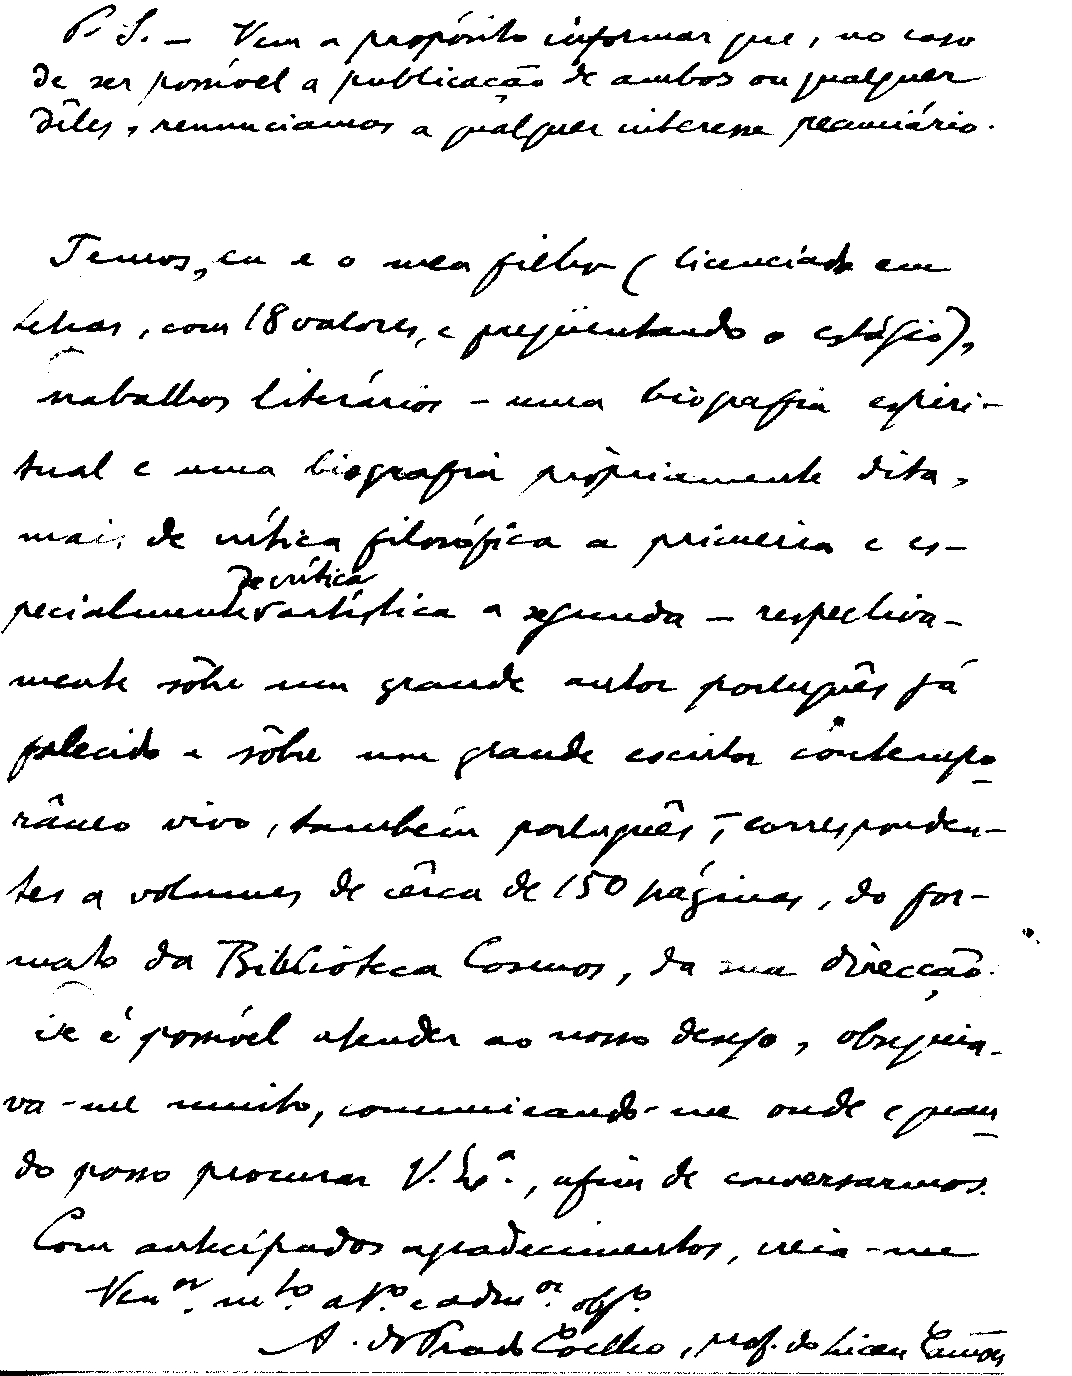 P. S. — Vem a propósito informar que, no caso
de ser possível a publicação de ambos ou qualquer
dêles, renunciamos a qualquer interesse pecuniário.
Temos, eu e o meu filho (licenciado em
Letras, com 18 valores, e freqüentando o estágio),
trabalhos literários — uma biografia espiri-
tual e uma biografia pròpriamente dita,
mais de crítica filosófica a primeira e es-
pecialmente de crítica artística a segunda — respectiva-
mente sôbre um grande autor português já
falecido e sôbre um grande escritor contempo-
râneo vivo, também português —, corresponden-
tes a volumes de cêrca de 150 páginas, do for-
mato da Biblioteca Cosmos, da sua direcção.
Se é possível atender ao nosso desejo, obsequia-
va-me muito, comunicando-me onde e quan-
do posso procurar V. Exª., afim de conversarmos.
Com antecipados agradecimentos, creia-me
Venºr. mtº. atº. e admºr. obgº.
A. do Prado Coelho, prof. do Liceu Camões